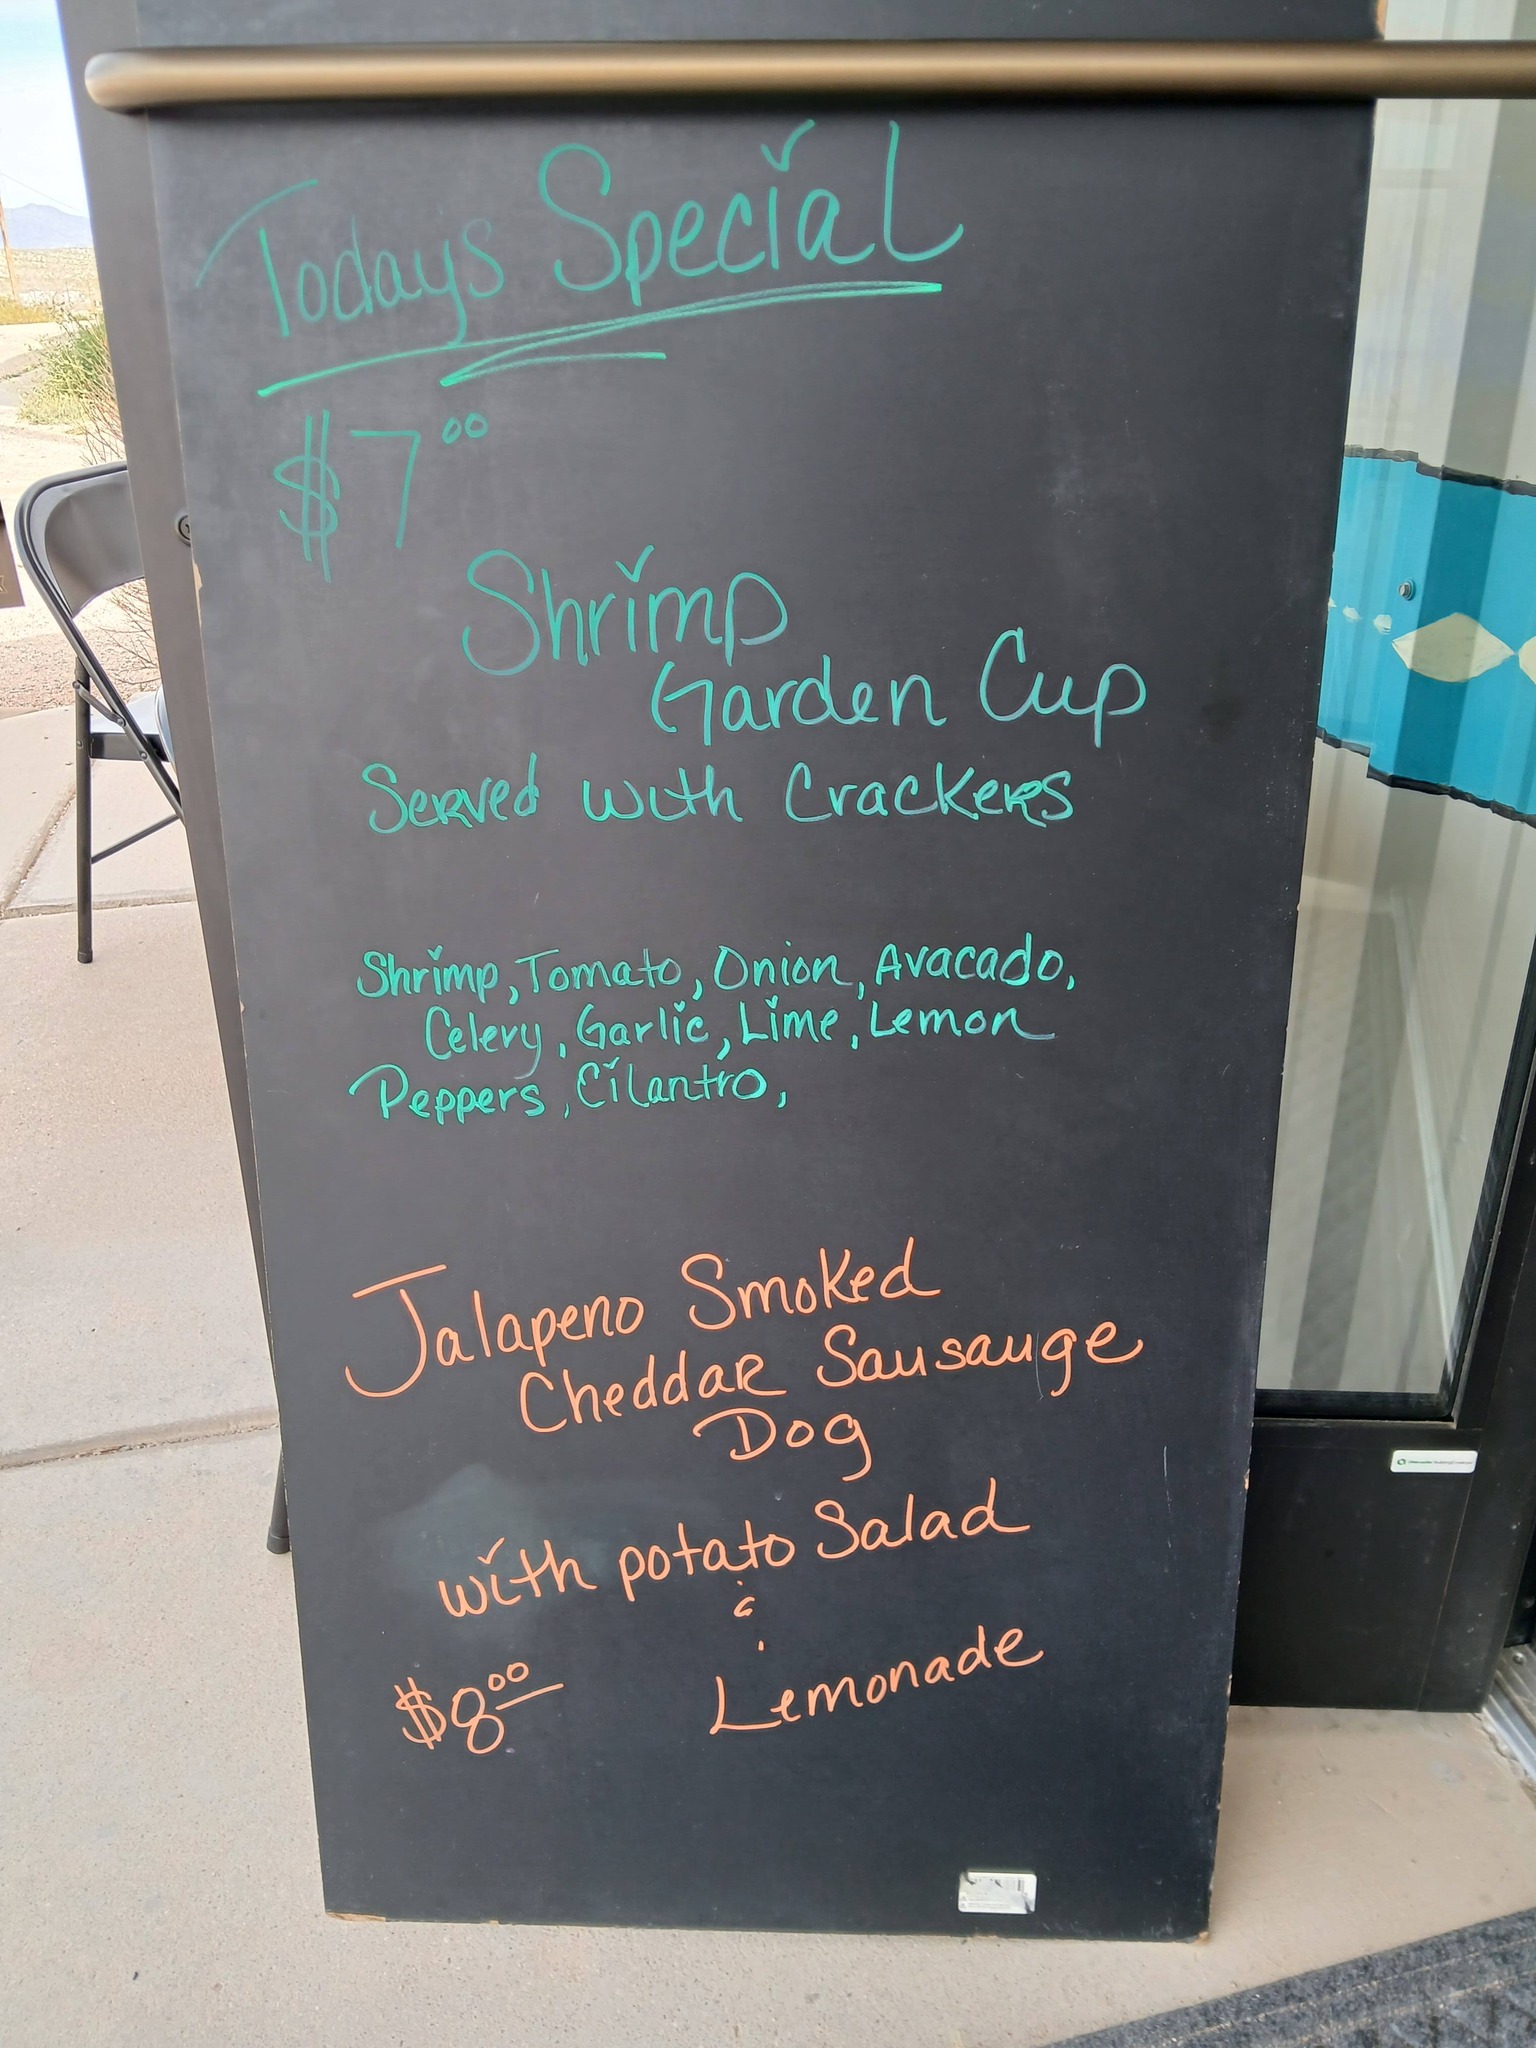 Todays Special
$7.00
Shrimp
Garden Cup
Served with Crackers
Shrimp, Tomato, Onion, Avacado,
Celery, Garlic, Lime, Lemon
Peppers, Cilantro,
Jalapeno Smoked
Cheddar Sausauge
Dog
with potato Salad
&
$8.00 Lemonade